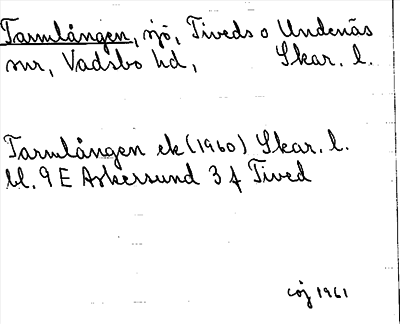 Tarmlången, sjö, Tiveds o Undenäs
snr, Vadsbo hd, Skar. l.
Tarmlången ek (1960) Skar. l.
bl. 9 E Askersund 3 f Tived
1961